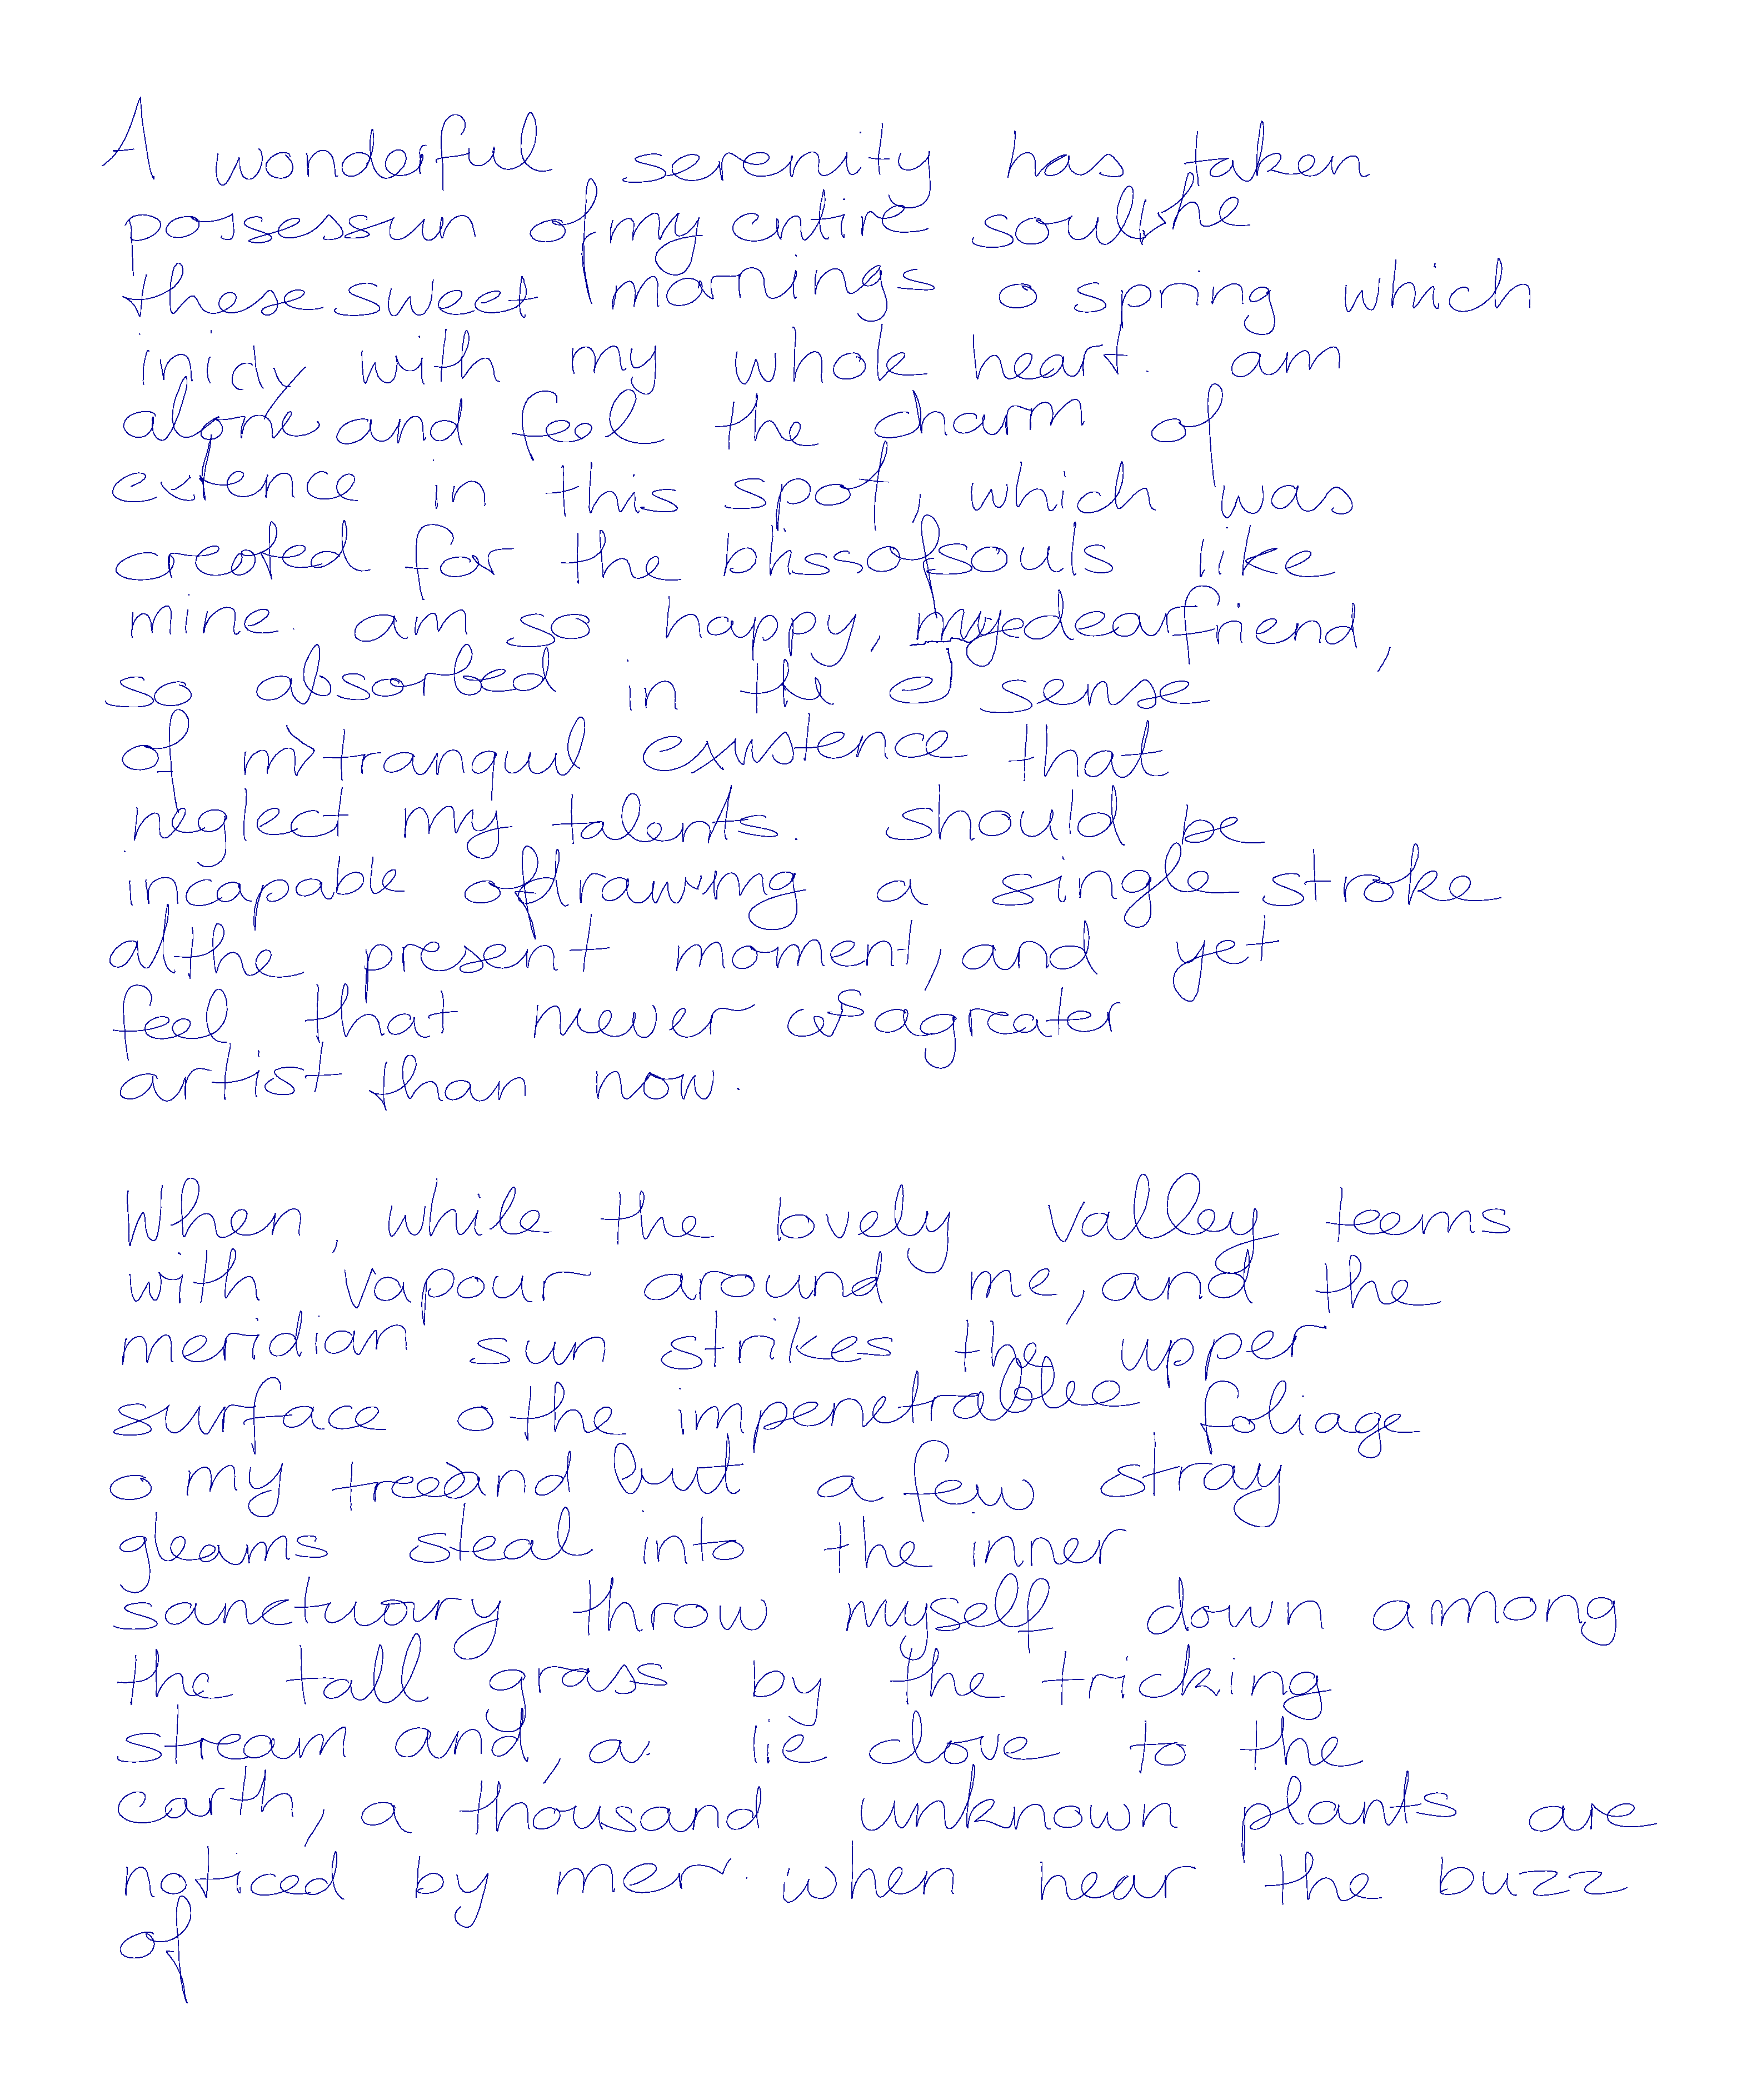 A wonderful serenity has taken
possessun of my entire soul the
these sweet mornings o spring which
inidy with my whole heart. am
alone and feel the charm of
extence in this spot, which was
created for the bliss of souls like
mine. am so happy, my dear friend,
so absorbed in the sense
of tranquil existence that
neglect my talents. should be
incapable of drawing a single stroke
althe present moment, and yet
feel that never a greater
artist than now.

When, while the lovely valley teems
with vapour around me, and the
meridian sun strikes the upper
surface o the impenetrable foliage
o my and but a few stray
gleams steal into the inner
sanctuary throw myself down among
the tall grass by the tricking
stream and, a. lie clove to the
earth, a thousand unknown plants are
noticed by mer. when hear the buzz
of